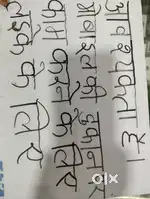 आवश्यकता है।
मोबाइल की दुकान पर
काम करने के लिए
लड़के के लिए
olx